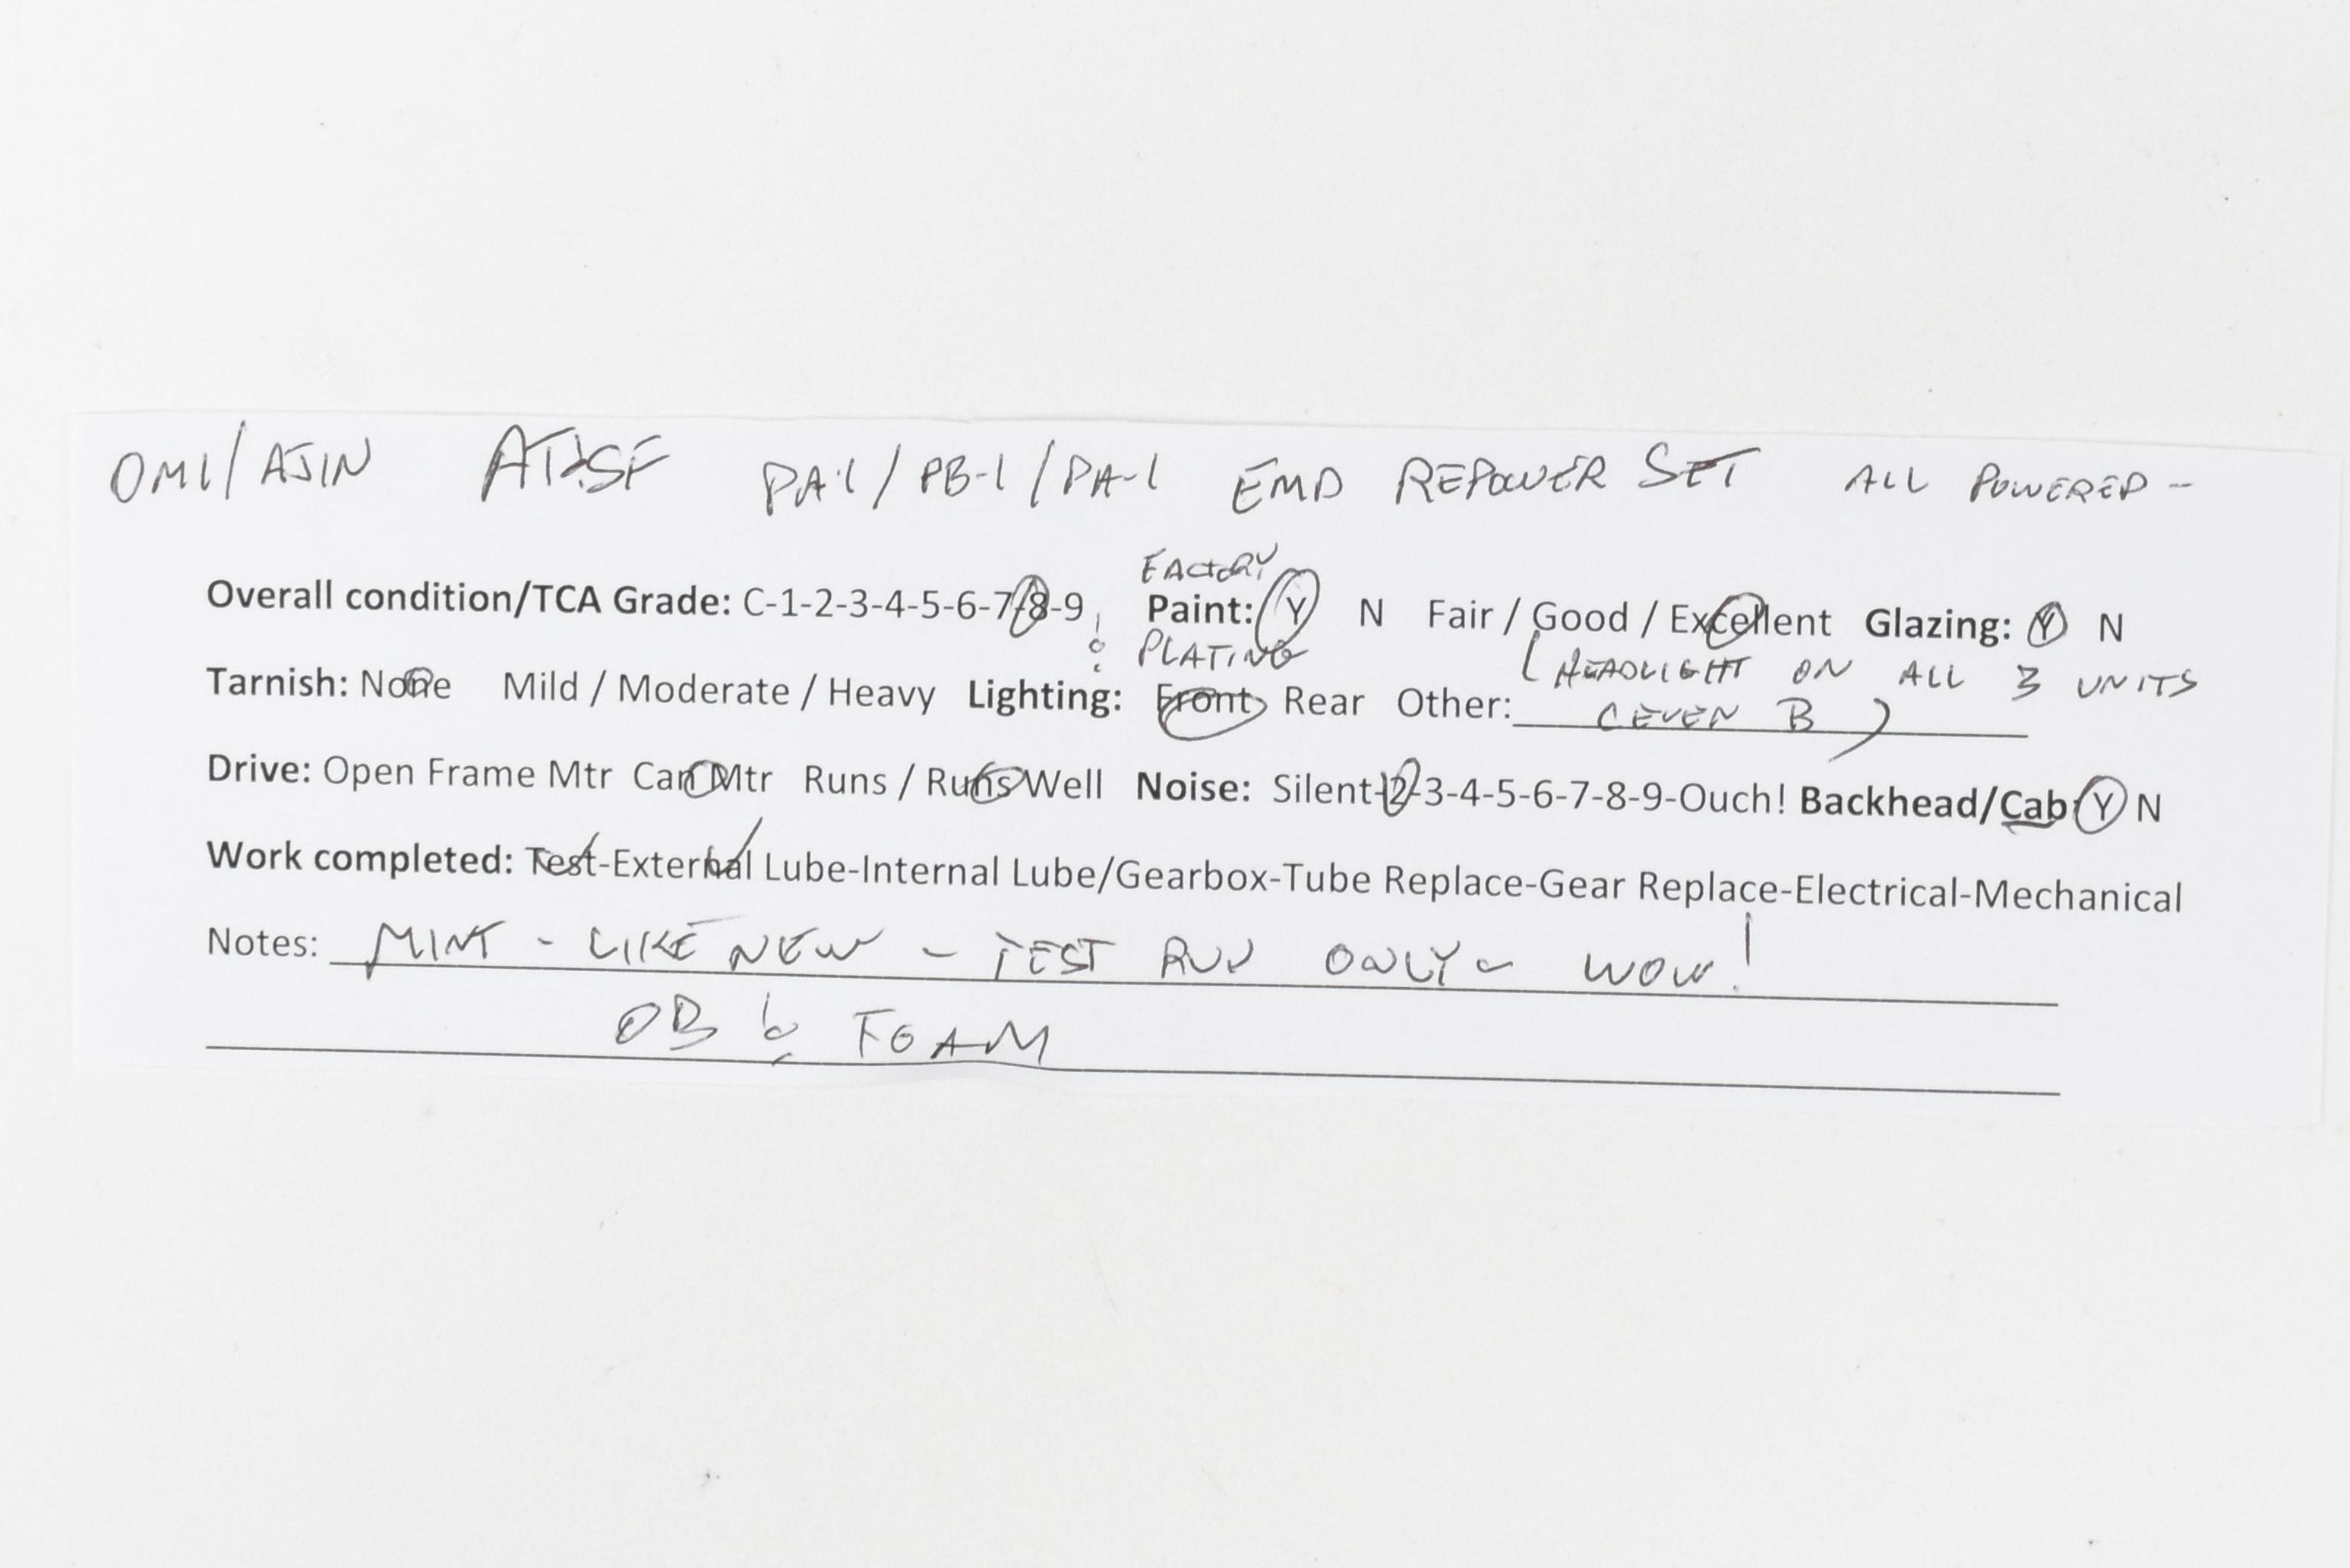 OMI/AJIN AT&SF PA-1/PB-1/PA-1 EMD REPOWER SET ALL POWERED -
FACTORY
Overall condition/TCA Grade: C-1-2-3-4-5-6-7-8-9 Paint: Y N Fair / Good / Excellent Glazing: Y N
& PLATING (HEADLIGHT ON ALL 3 UNITS
Tarnish: None Mild / Moderate / Heavy Lighting: Front Rear Other: (EVEN B)
Drive: Open Frame Mtr Can Mtr Runs / Runs Well Noise: Silent-2-3-4-5-6-7-8-9-Ouch! Backhead/Cab: Y N
Work completed: Test-External Lube-Internal Lube/Gearbox-Tube Replace-Gear Replace-Electrical-Mechanical
Notes: MINT - LIKE NEW - TEST RUN ONLY - WOW!
OB & FOAM